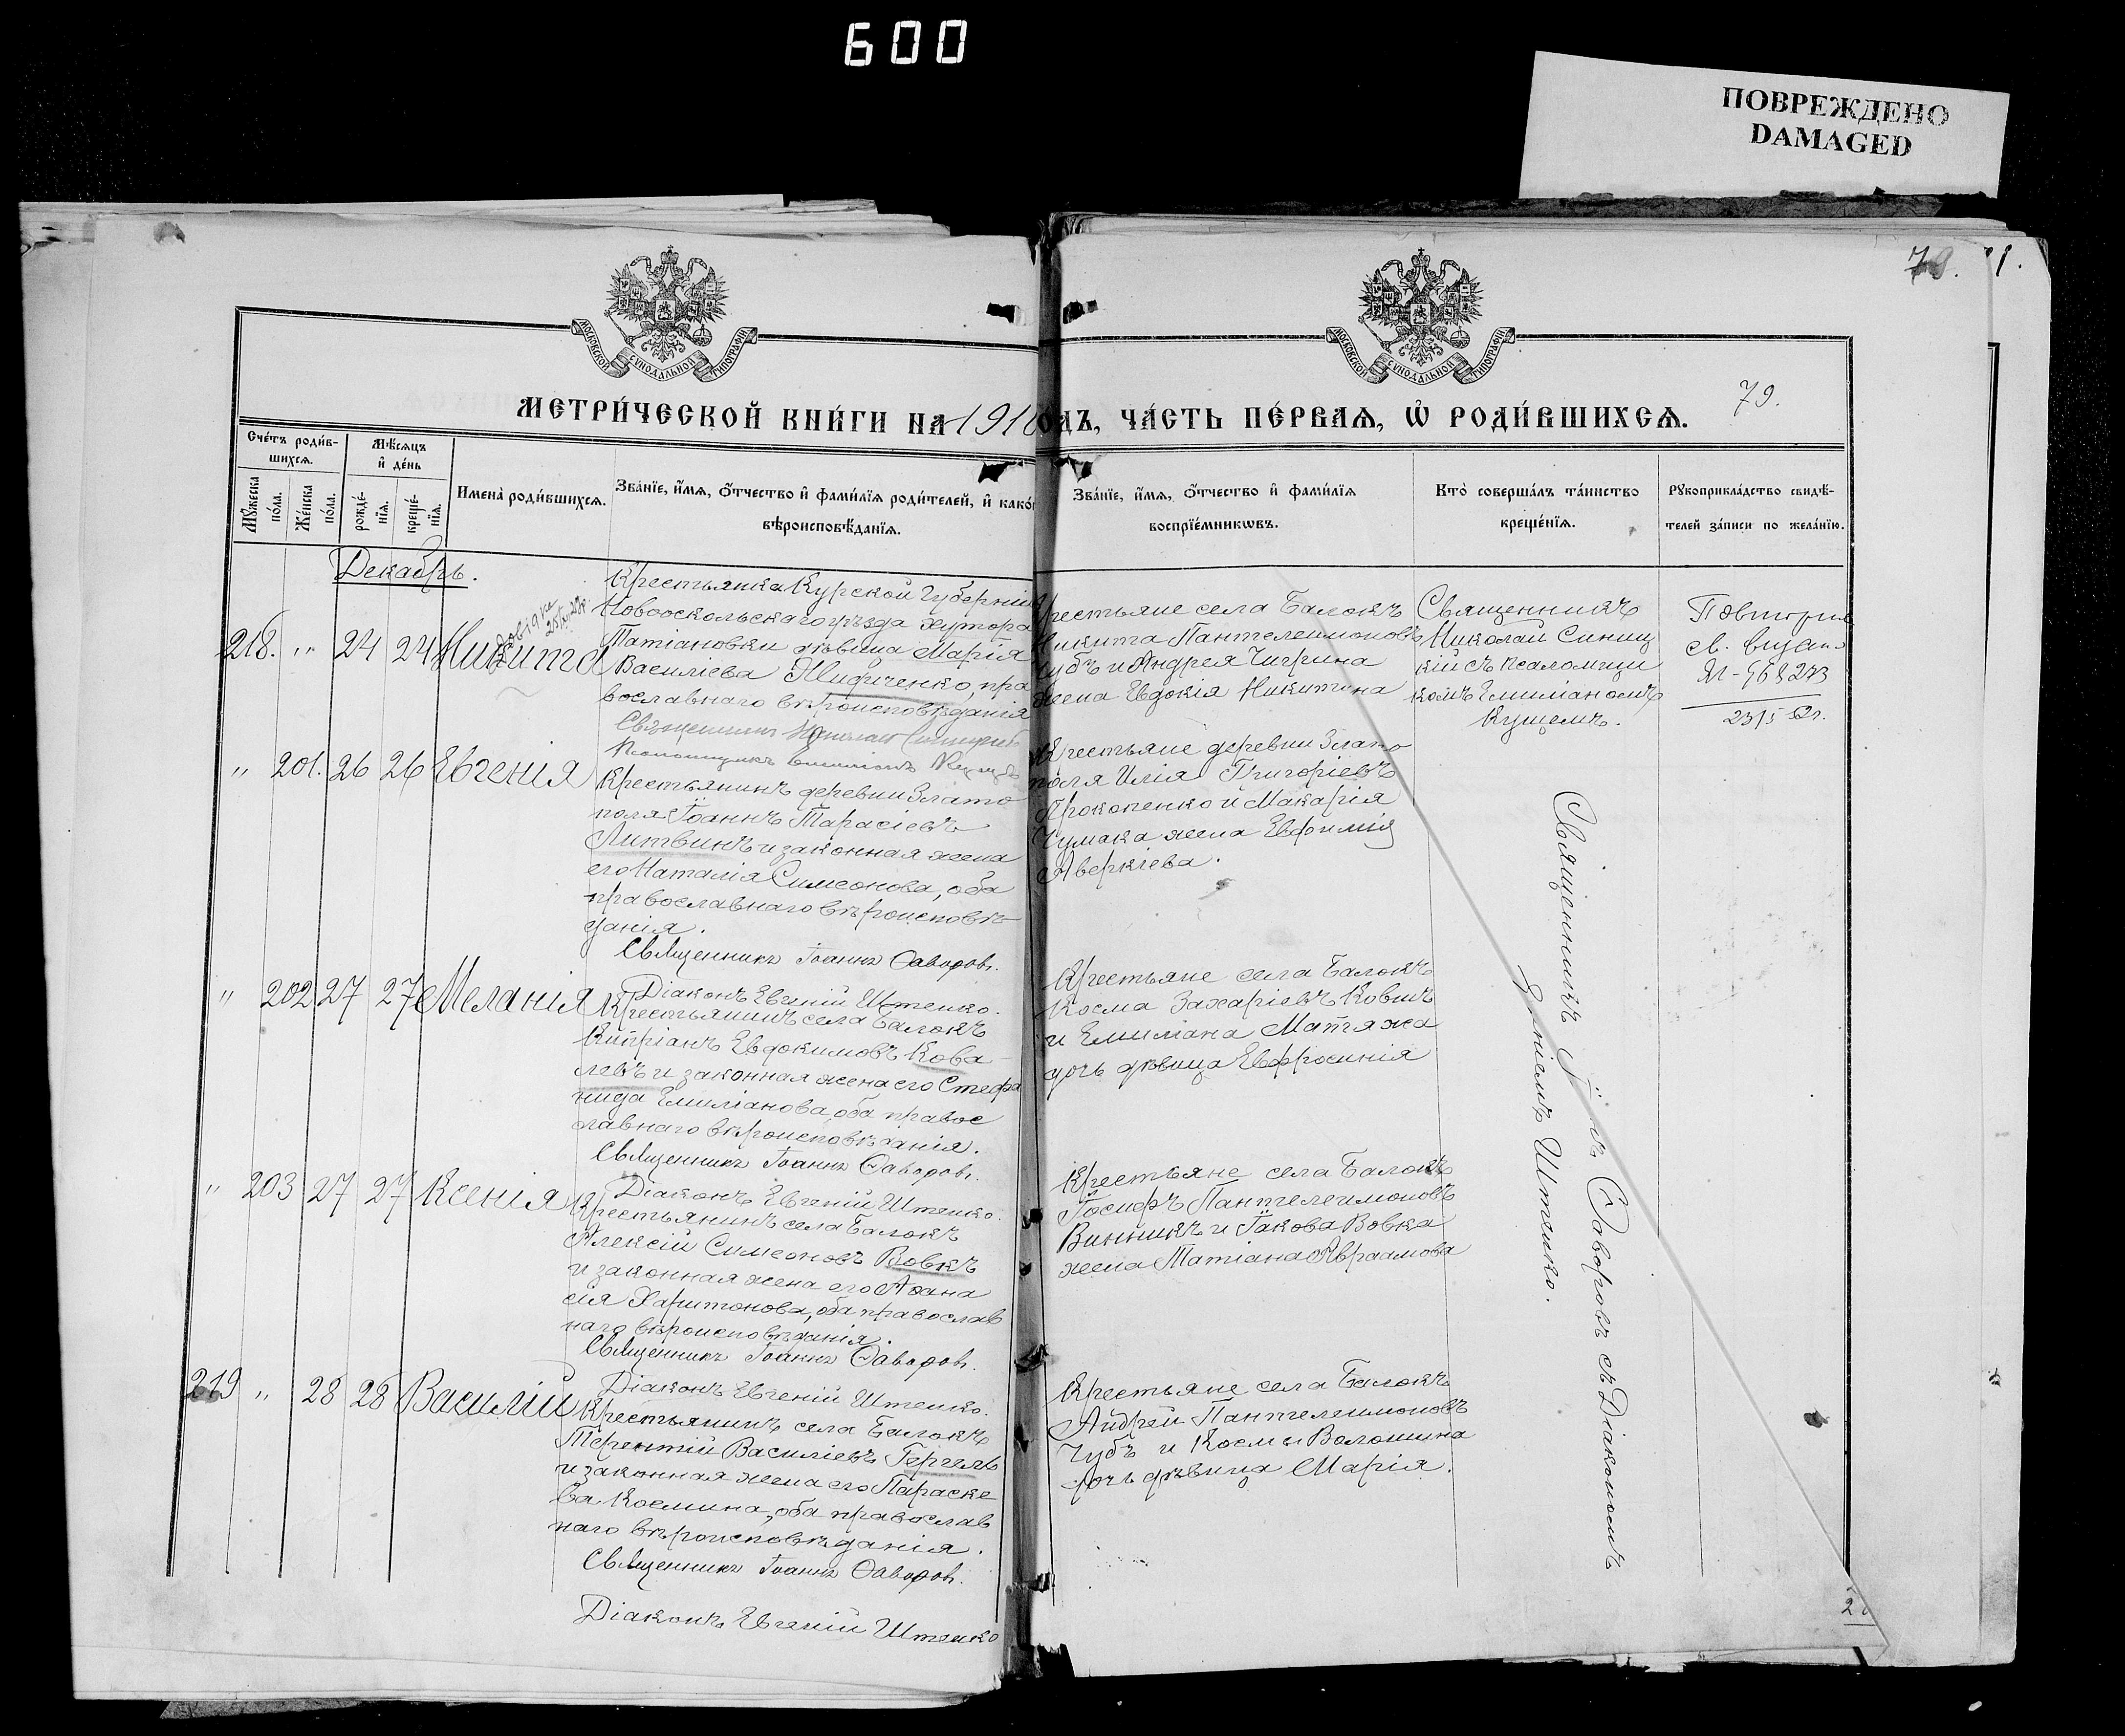 600
ПОВРЕЖДЕНО
DAMAGED
79. 1.
МОСКОВСКОЙ СУНОДАЛЬНОЙ ТИПОГРАФІИ
МОСКОВСКОЙ СУНОДАЛЬНОЙ ТИПОГРАФІИ
МЕТРИ́ЧЕСКОЙ КНИ́ГИ НА 191 ОДЪ, ЧА́СТЬ ПЕ́РВАѦ, Ѡ҆ РОДИ́ВШИХСѦ.
79.
Сче́тъ роди́в-
шихсѧ.
Мѣ́сѧцъ
и҆ де́нь
Мꙋ́жеска по́ла.
Же́нска по́ла.
рожде́-
нїѧ.
креще́-
нїѧ.
Имена̀ роди́вшихсѧ.
Зва́нїе, и҆́мѧ, ѻ҆́тчество и҆ фами́лїѧ роди́телей, и҆ како́
вѣроисповѣ́данїѧ.
Зва́нїе, и҆́мѧ, ѻ҆́тчество и҆ фами́лїѧ
воспрїе́мникѡвъ.
Кто̀ соверша́лъ та́инство
креще́нїѧ.
Рꙋкоприкла́дство свидѣ́-
телей за́писи по жела́нїю.
Декабрь.
218. " 24 24 Никита
Крестьянка Курской Губерніи
Новооскольскаго уѣзда хутора
Татіановки дѣвица Марія
Василіева Жидиченко, пра
вославнаго вѣроисповѣданія
Священникъ Николай
Крестьяне села Балокъ
Никита Пантелеимоновъ
Чубъ и Андрея Чигрина
жена Евдокія Никитина
Священникъ
Николай Синиц
кій съ псаломщи
комъ Емиліаномъ
Кущемъ.
Повторне
св. видано
" 201. 26 26 Евгенія
Крестьянинъ деревни Злато
поля Іоаннъ Тарасіевъ
Литвинъ и законная жена
его Наталія Симеонова, оба
православнаго вѣроисповѣ
данія.
Священникъ Іоаннъ Ѳаворовъ.
Діаконъ Евгеній Штепко.
Крестьяне деревни Злато
поля Илія Григоріевъ
Прокопенко и Макарія
Чумака жена Евфимія
Аверкіева.
Священникъ Іоаннъ Ѳаворовъ съ Діакономъ
Евгеніемъ Штепко.
" 202 27 27 Меланія
Крестьянинъ села Балокъ
Кипріанъ Евдокимовъ Кова
левъ и законная жена его Стефа
нида Емиліанова, оба правос
лавнаго вѣроисповѣданія.
Священникъ Іоаннъ Ѳаворовъ.
Діаконъ Евгеній Штепко.
Крестьяне села Балокъ
Косма Захаріевъ Ковшъ
и Емиліана Матяжа
дочь дѣвица Евфросинія
" 203 27 27 Ксенія
Крестьянинъ села Балокъ
Алексій Симеоновъ Вовкъ
и законная жена его Аѳана
сія Харитонова, оба православ
наго вѣроисповѣданія.
Священникъ Іоаннъ Ѳаворовъ.
Діаконъ Евгеній Штепко.
Крестьяне села Балокъ
Іосифъ Пантелеимоновъ
Винникъ и Іакова Вовка
жена Татіана Авраамова
219 " 28 28 Василій
Крестьянинъ села Балокъ
Терентій Василіевъ Гергель
и законная жена его Параске
ва Космина, оба православ
наго вѣроисповѣданія.
Священникъ Іоаннъ Ѳаворовъ.
Діаконъ Евгеній Штепко
Крестьяне села Балокъ
Андрей Пантелеимоновъ
Чубъ и Космы Волошина
дочь дѣвица Марія.